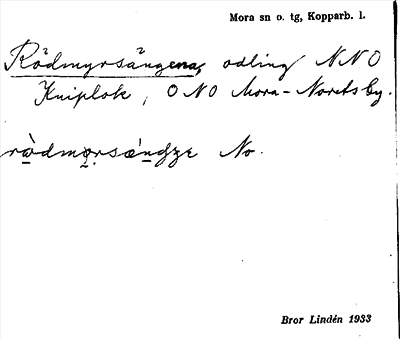 Mora sn o. tg, Kopparb. l.
Rödmyrsängena, odling NNO
Kniplok, ONO Mora-Noretsby.
No.
Bror Lindén 1933